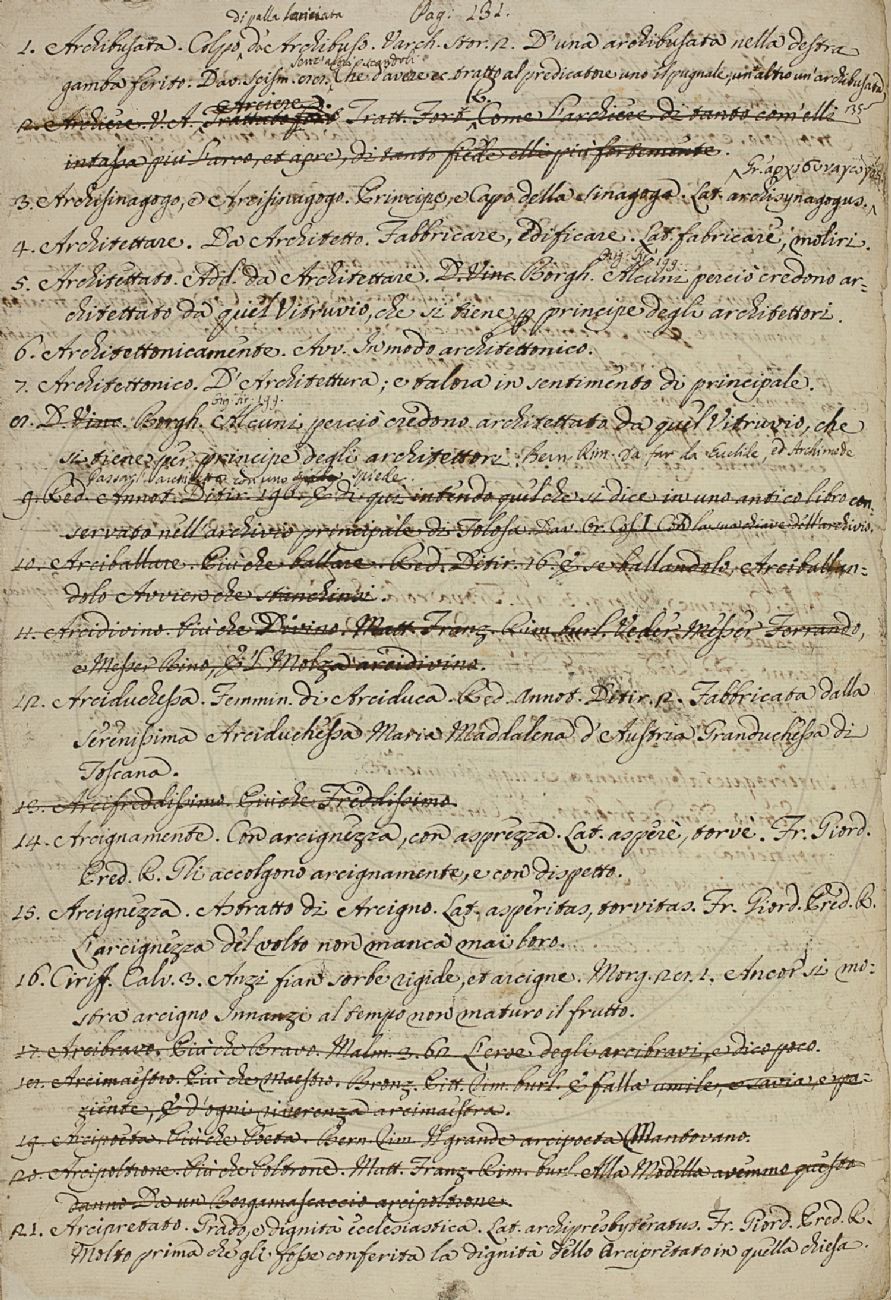 di palla lanciata Pag. 131.
1. Archibusata. Colpo d'Archibuso. Varch. Stor. 2. D'una archibusata nella destra
gamba ferito. Dav. Scism. Che davere ec. tratto al predicatore uno il pugnale, un'altro un'archibusata
Arciere
2. Archiere. V. A. Tratt. Fort. Come l'archiere di tanto com'elli
intassa più l'arco, et apre, di tanto fiede elli più fortemente.
3. Archisinagogo, e Arcisinagogo. Principe, e Capo della sinagoga. Lat. archisynagogus.
4. Architettare. Da Architetto. Fabbricare, edificare. Lat. fabricare, moliri.
5. Architettato. Add. da Architettare. D. Vinc. Borgh. Alcuni perciò credono ar-
chitettato da quel Vitruvio, che si tiene p principe degli architettori.
6. Architettonicamente. Avv. In modo architettonico.
7. Architettonico. D'Architettura; e talora in sentimento di principale.
8. D. Vinc. Borgh. Alcuni perciò credono architettato da quel Vitruvio, che
si tiene per principe degli architettori. Bern. Rim. Da far da Euclide, ed Archimede
9. Red. Annot. Ditir. 196. E di qui intendo quel che si dice in uno antico libro con-
servato nell'archivio principale di Tolosa. Dav. Or. Cos. I. Con la sua chiave dell'archivio.
10. Arciballare. Più che ballare. Red. Ditir. 16. E se ballandolo, Arciballan-
dolo Avvien che stanchinsi.
11. Arcidivino. Più che Divino. Matt. Franz. Rim. burl. Veder Messer Ferrando,
e Messer Bino, E 'l Molza arcidivino.
12. Arciduchessa. Femmin. di Arciduca. Red. Annot. Ditir. 12. Fabbricata dalla
Serenissima Arciduchessa Maria Maddalena d'Austria Granduchessa di
Toscana.
13. Arcifreddissimo. Più che Freddissimo.
14. Arcignamente. Con arcignezza, con asprezza. Lat. asperè, torve. Fr. Giord.
Pred. R. Gli accolgono arcignamente, e con dispetto.
15. Arcignezza. Astratto di Arcigno. Lat. asperitas, torvitas. Fr. Giord. Pred. R.
L'arcignezza del volto non manca mai loro.
16. Ciriff. Calv. 3. Anzi fian sorbe rigide, et arcigne. Morg. 28. 1. Ancor si mo-
stra arcigno Innanzi al tempo non maturo il frutto.
17. Arcibravo. Più che Bravo. Malm. 3. 60. L'eroe degli arcibravi, e dico poco.
18. Arcimaestro. Più che Maestro. Bronz. Pitt. Rim. burl. E falla umile, e savia, e pa-
ziente, E d'ogni riverenza arcimaestra.
19. Arcipoeta. Più che Poeta. Bern. Rim. Il grande arcipoeta Mantovano.
20. Arcipoltrone. Più che Poltrone. Matt. Franz. Rim. burl. Alla Modella avemmo questo
danno Da un Bergamascaccio arcipoltrone.
21. Arcipretato. Grado, e dignità ecclesiastica. Lat. archipresbyteratus. Fr. Giord. Pred. R.
Molto prima che gli fosse conferita la dignità dello Arcipretato in quella chiesa.